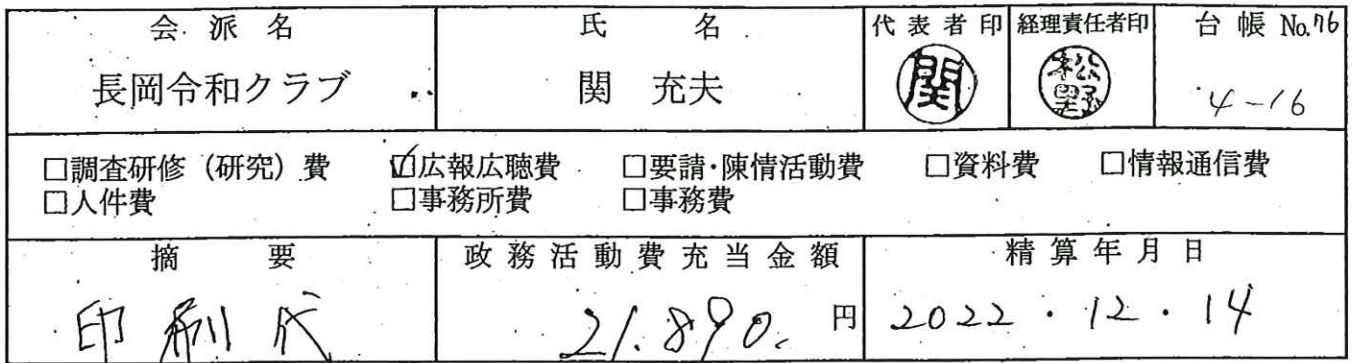 会派名 氏名 代表者印 経理責任者印 台帳 No.76
長岡令和クラブ 関 充夫 関 松野 4-16
□調査研修（研究）費 ☑広報広聴費 □要請・陳情活動費 □資料費 □情報通信費
□人件費 □事務所費 □事務費
摘要 政務活動費充当金額 精算年月日
印刷代 21.890. 円 2022・12・14